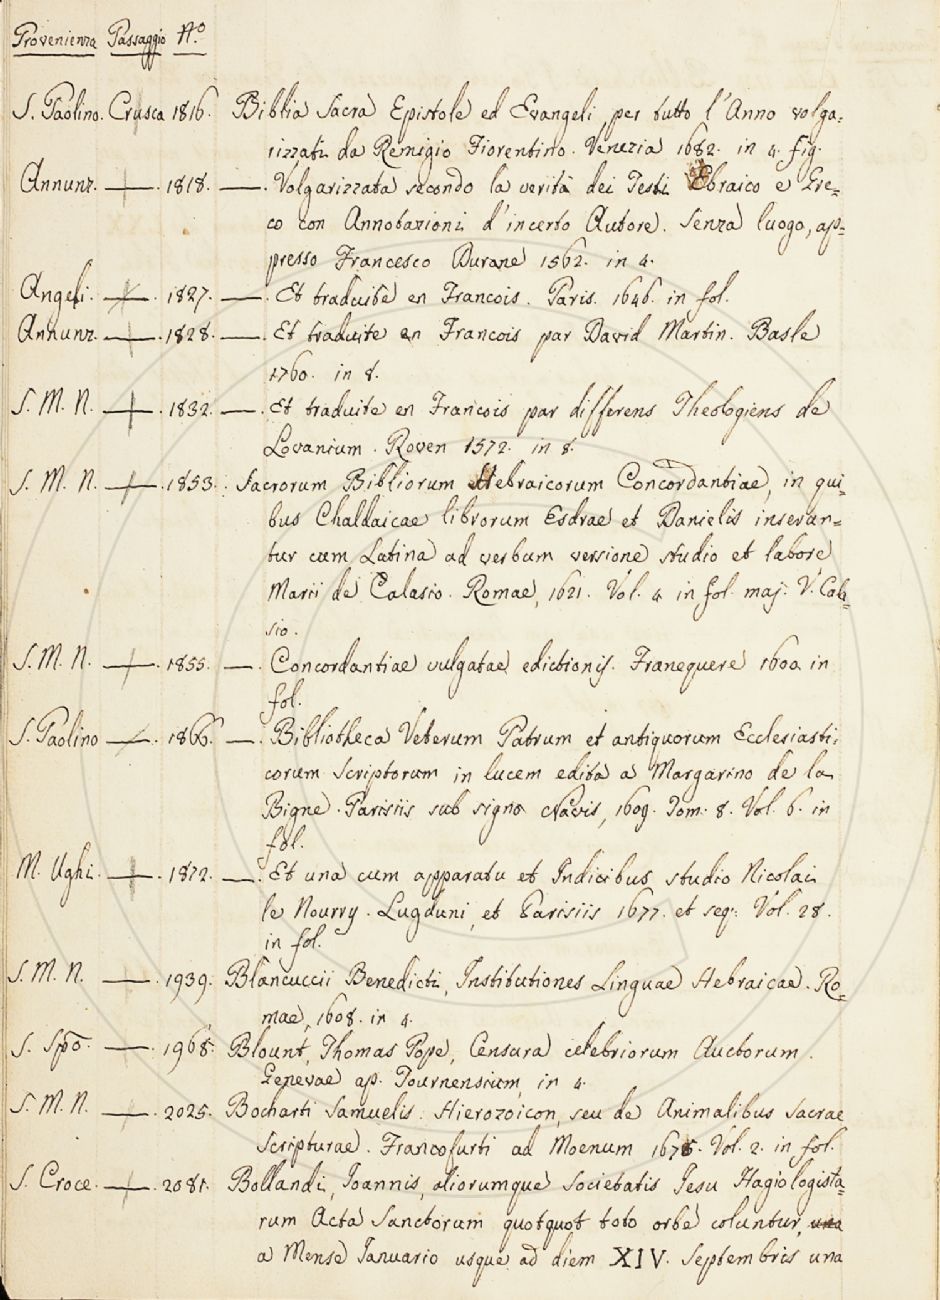 Provenienza Passaggio N.o
S. Paolino. Crusca 1816. Biblia Sacra Epistole ed Evangeli, per tutto l'Anno volga:
rizzati da Remigio Fiorentino. Venezia 1682. in 4. fig.
Annunz. — . 1818. — . Volgarizzata secondo la verità dei Testi Ebraico e Gre=
co con Annotazioni d'incerto Autore. Senza luogo, ap=
presso Francesco Durane 1562. in 4.
Angeli. — . 1827. — . Et traduite en Francois. Paris. 1646. in fol.
Annunz. — . 1828. — . Et traduite en Francois par David Martin. Basle
1760. in 8.
S. M. N. — . 1832. — . Et traduite en Francois par differens Theologiens de
Lovanium. Roven 1572. in 8.
S. M. N. — . 1853. Sacrorum Bibliorum Hebraicorum Concordantiae, in qui=
bus Chaldaicae librorum Esdrae et Danielis inserun=
tur cum Latina ad verbum versione studio et labore
Marii de Calasio. Romae, 1621. Vol. 4 in fol. maj. V. Cala=
sio.
S. M. N. — . 1855. — . Concordantiae vulgatae edictionis. Franequere 1600 in
fol.
S. Paolino — . 1866. — . Bibliotheca Veterum Patrum et antiquorum Ecclesiasti:
corum scriptorum in lucem edita a Margarino de la
Bigne. Parisiis sub signo Navis, 1609. Tom. 8. Vol. 6. in
fol.
M. Ughi. — . 1872. — . Et una cum apparatu et Indicibus studio Nicolai
le Nourry. Lugduni, et Parisiis 1677. et seq. Vol. 28.
in fol.
S. M. N. — . 1939. Blancuccii Benedicti, Institutiones Linguae Hebraicae. Ro=
mae, 1608. in 4.
S. Spo. — . 1968. Blount, Thomas Pope, Censura celebriorum Auctorum.
Genevae ap. Tournensium, in 4.
S. M. N. — . 2025. Bocharti Samuelis. Hierozoicon, seu de Animalibus Sacrae
Scripturae. Francofurti ad Moenum 1675. Vol. 2. in fol.
S. Croce. — . 2081. Bollandi, Joannis, aliorumque Societatis Jesu Hagiologista=
rum Acta Sanctorum quotquot toto orbe coluntur, una
a Mense Januario usque ad diem XIV. Septembris una